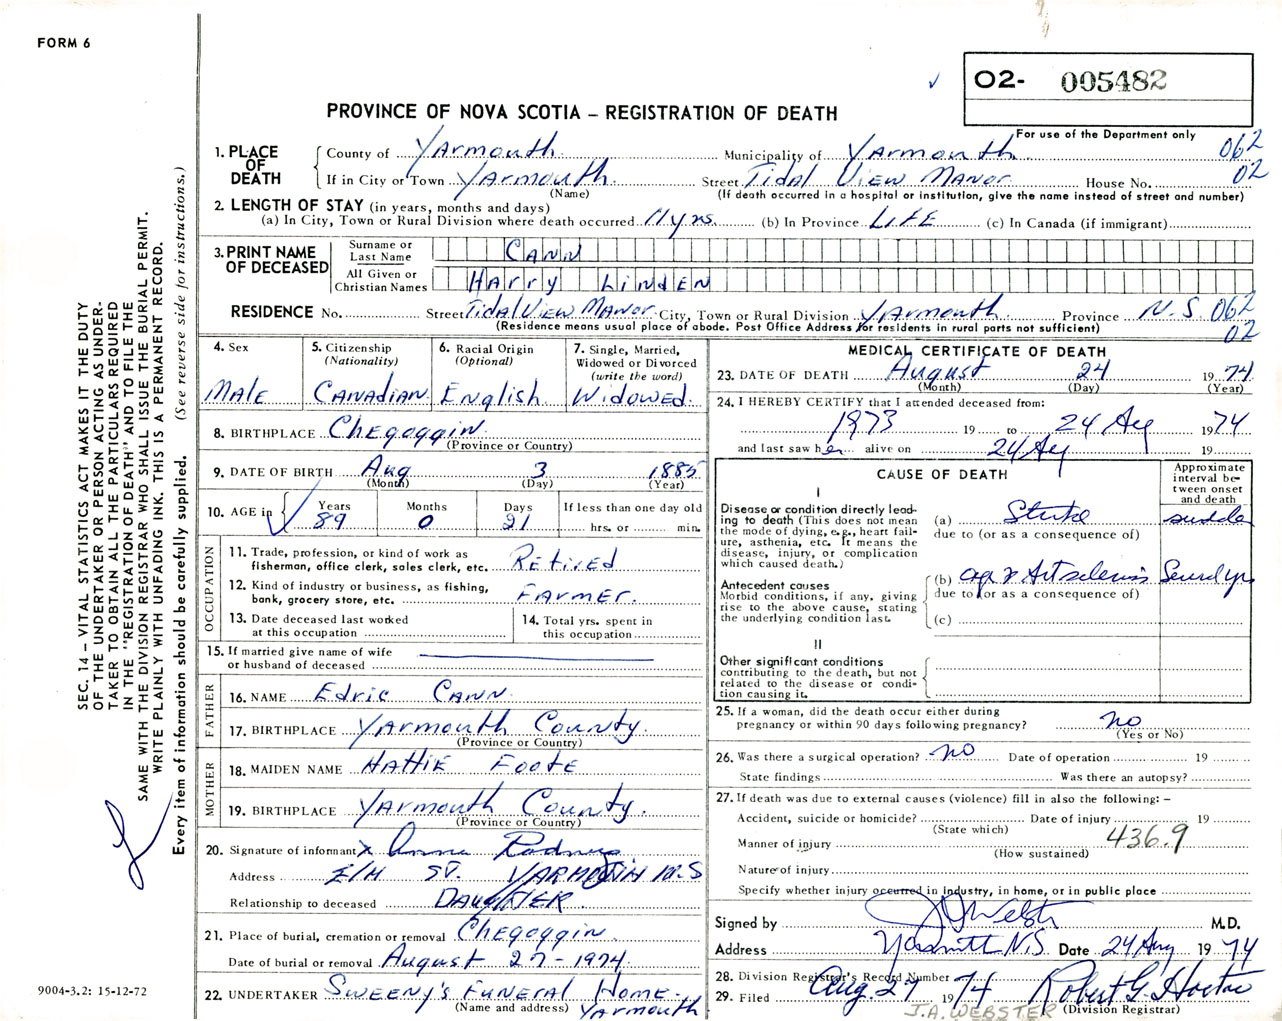 FORM 6
O2- 005482
PROVINCE OF NOVA SCOTIA – REGISTRATION OF DEATH
For use of the Department only
1. PLACE OF DEATH
County of Yarmouth Municipality of Yarmouth 062
If in City or Town Yarmouth Street Tidal View Manor House No. 02
(Name) (If death occurred in a hospital or institution, give the name instead of street and number)
2. LENGTH OF STAY (in years, months and days)
(a) In City, Town or Rural Division where death occurred 11 yrs. (b) In Province LIFE (c) In Canada (if immigrant)
3. PRINT NAME OF DECEASED
Surname or Last Name CANN
All Given or Christian Names Harry LINDEN
RESIDENCE No. Street Tidal View Manor City, Town or Rural Division Yarmouth Province N.S. 062
(Residence means usual place of abode. Post Office Address for residents in rural parts not sufficient) 02
4. Sex
Male
5. Citizenship
(Nationality)
Canadian
6. Racial Origin
(Optional)
English
7. Single, Married,
Widowed or Divorced
(write the word)
Widowed.
8. BIRTHPLACE Chegoggin
(Province or Country)
9. DATE OF BIRTH Aug 3 1885
(Month) (Day) (Year)
10. AGE in
Years Months Days If less than one day old
89 0 21 hrs. or min.
OCCUPATION
11. Trade, profession, or kind of work as
fisherman, office clerk, sales clerk, etc. Retired
12. Kind of industry or business, as fishing,
bank, grocery store, etc. FARMER.
13. Date deceased last worked
at this occupation
14. Total yrs. spent in
this occupation
15. If married give name of wife
or husband of deceased
FATHER
16. NAME Edric Cann
17. BIRTHPLACE Yarmouth County.
(Province or Country)
MOTHER
18. MAIDEN NAME HATTIE FOOTE
19. BIRTHPLACE Yarmouth County.
(Province or Country)
20. Signature of informant x Anna Rodney
Address E/H ST. YARMOUTH N.S
Relationship to deceased DAUGHTER
21. Place of burial, cremation or removal Chegoggin
Date of burial or removal August 27-1974.
22. UNDERTAKER Sweeny's Funeral Home.
(Name and address) Yarmouth
MEDICAL CERTIFICATE OF DEATH
23. DATE OF DEATH August 24 1974
(Month) (Day) (Year)
24. I HEREBY CERTIFY that I attended deceased from:
1973 19 to 24 Aug 1974
and last saw her alive on 24 Aug 19
CAUSE OF DEATH
Approximate
interval be-
tween onset
and death
I
Disease or condition directly lead-
ing to death (This does not mean
the mode of dying, e.g., heart fail-
ure, asthenia, etc. It means the
disease, injury, or complication
which caused death.)
(a) Stroke sudden
due to (or as a consequence of)
Antecedent causes
Morbid conditions, if any, giving
rise to the above cause, stating
the underlying condition last.
(b) age Several yrs
due to (or as a consequence of)
(c)
II
Other significant conditions
contributing to the death, but not
related to the disease or condi-
tion causing it.
25. If a woman, did the death occur either during
pregnancy or within 90 days following pregnancy? no
(Yes or No)
26. Was there a surgical operation? no Date of operation 19
State findings Was there an autopsy?
27. If death was due to external causes (violence) fill in also the following: –
Accident, suicide or homicide? Date of injury 19
(State which)
436.9
Manner of injury
(How sustained)
Nature of injury
Specify whether injury occurred in industry, in home, or in public place
Signed by J A Webster M.D.
Address Yarmouth N.S. Date 24 Aug 1974
28. Division Registrar's Record Number
29. Filed Aug. 27 1974 Robert G.
J.A. WEBSTER (Division Registrar)
SEC. 14 – VITAL STATISTICS ACT MAKES IT THE DUTY
OF THE UNDERTAKER OR PERSON ACTING AS UNDER-
TAKER TO OBTAIN ALL THE PARTICULARS REQUIRED
IN THE "REGISTRATION OF DEATH" AND TO FILE THE
SAME WITH THE DIVISION REGISTRAR WHO SHALL ISSUE THE BURIAL PERMIT.
WRITE PLAINLY WITH UNFADING INK. THIS IS A PERMANENT RECORD.
Every item of information should be carefully supplied. (See reverse side for instructions.)
9004-3.2: 15-12-72